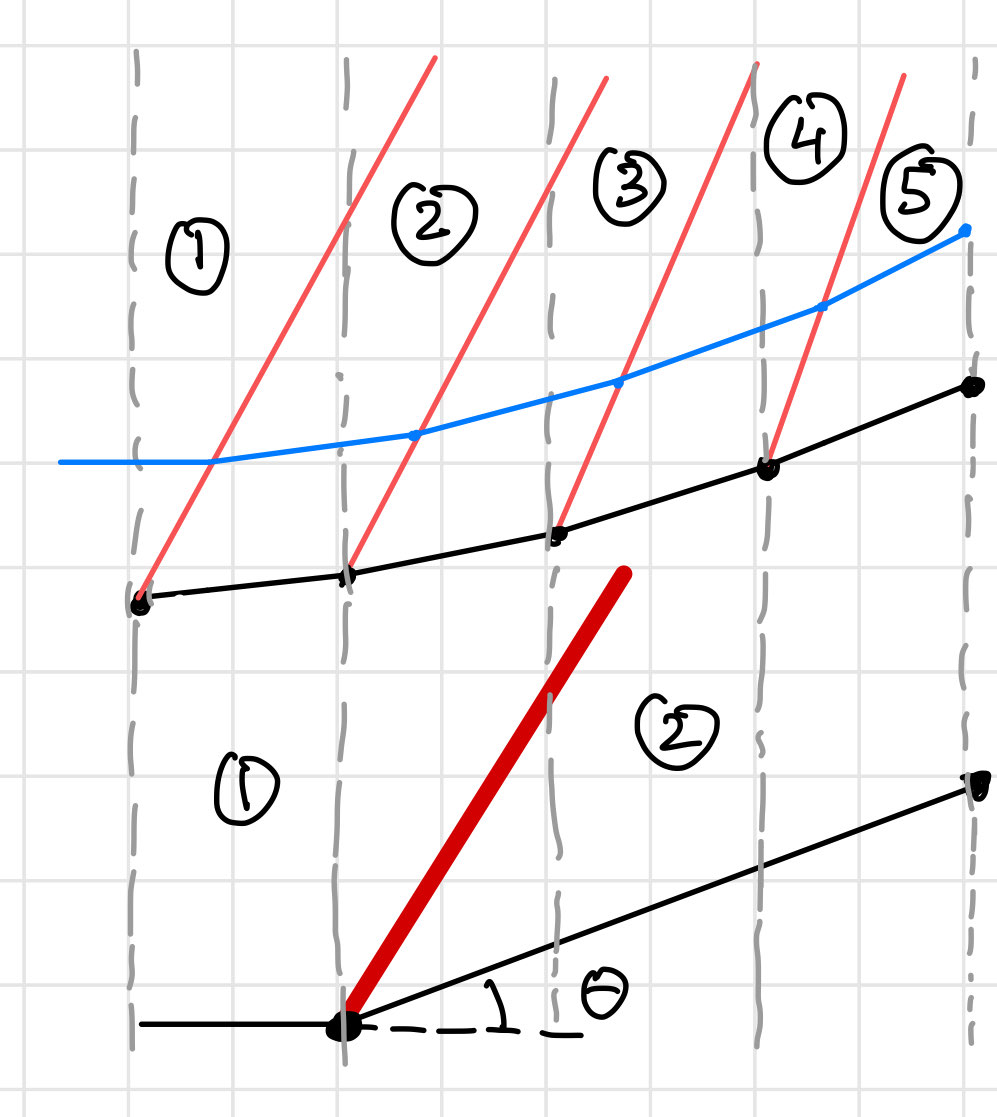 ① ② ③ ④ ⑤
① ②
θ